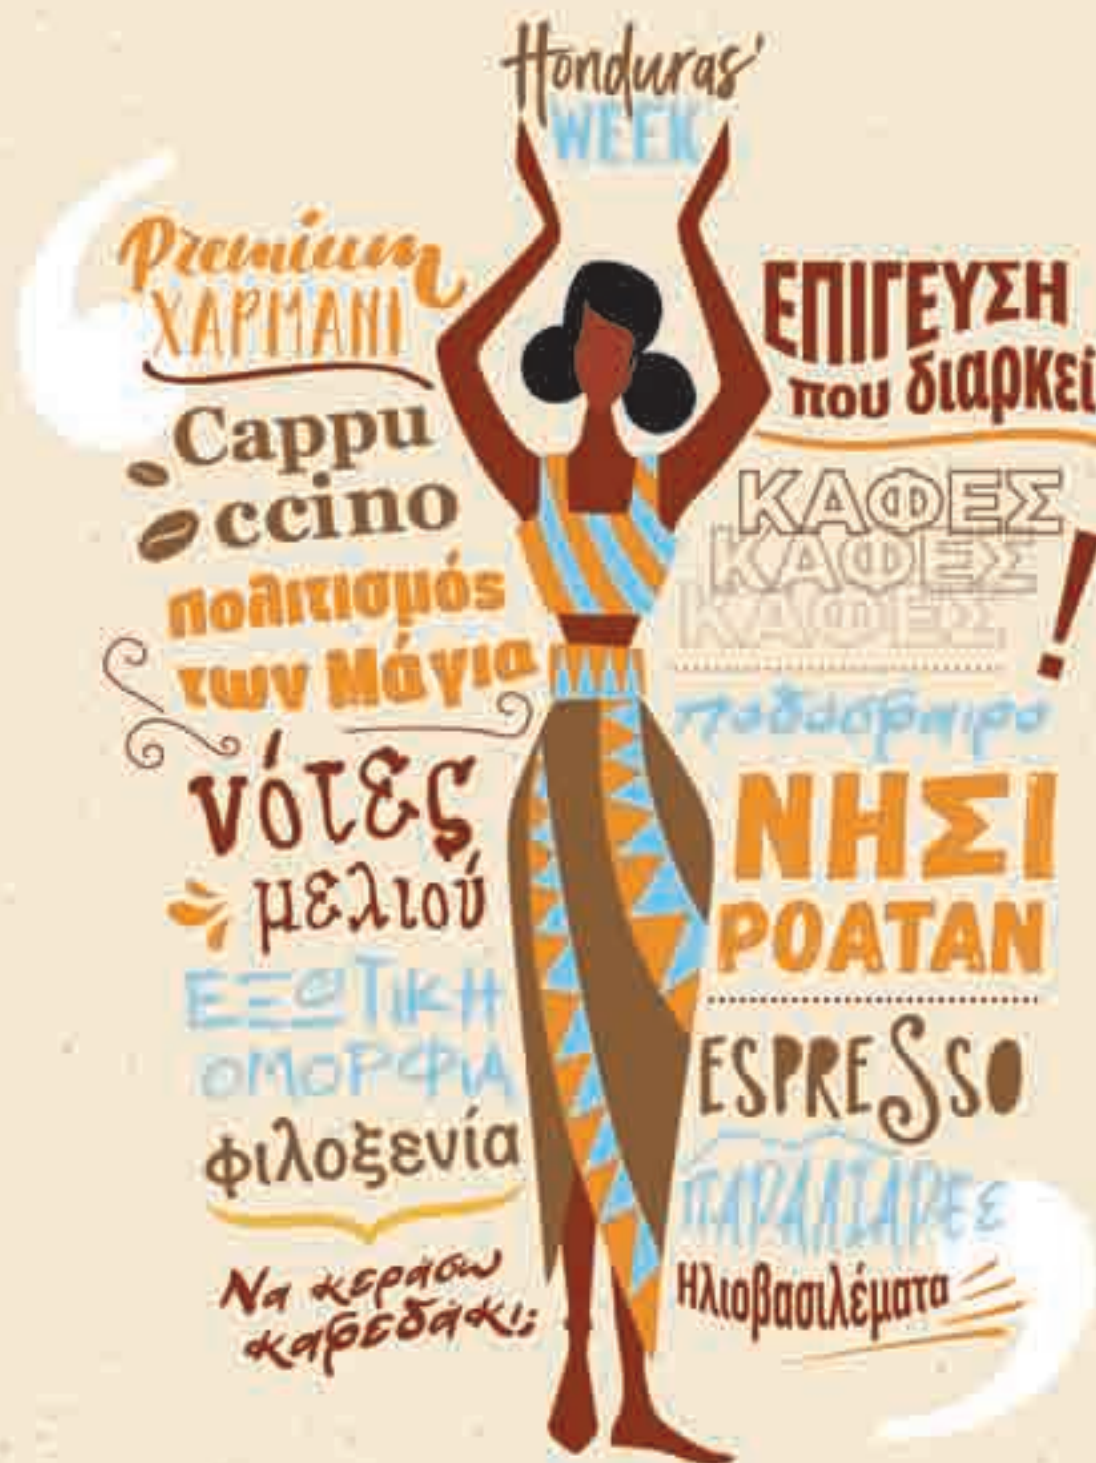 Honduras'
WEEK
Premium
ΧΑΡΜΑΝΙ
Cappu
ccino
πολιτισμός
των Μάγια
νότες
μελιού
ΕΞΩΤΙΚΗ
ΟΜΟΡΦΙΑ
φιλοξενία
Να κεράσω
καφεδάκι;
ΕΠΙΓΕΥΣΗ
που διαρκεί
ΚΑΦΕΣ
ΚΑΦΕΣ
ΚΑΦΕΣ
!
ποδόσφαιρο
ΝΗΣΙ
ΡΟΑΤΑΝ
ESPRESSO
ΠΑΡΑΛΙΑΡΕΣ
Ηλιοβασιλέματα